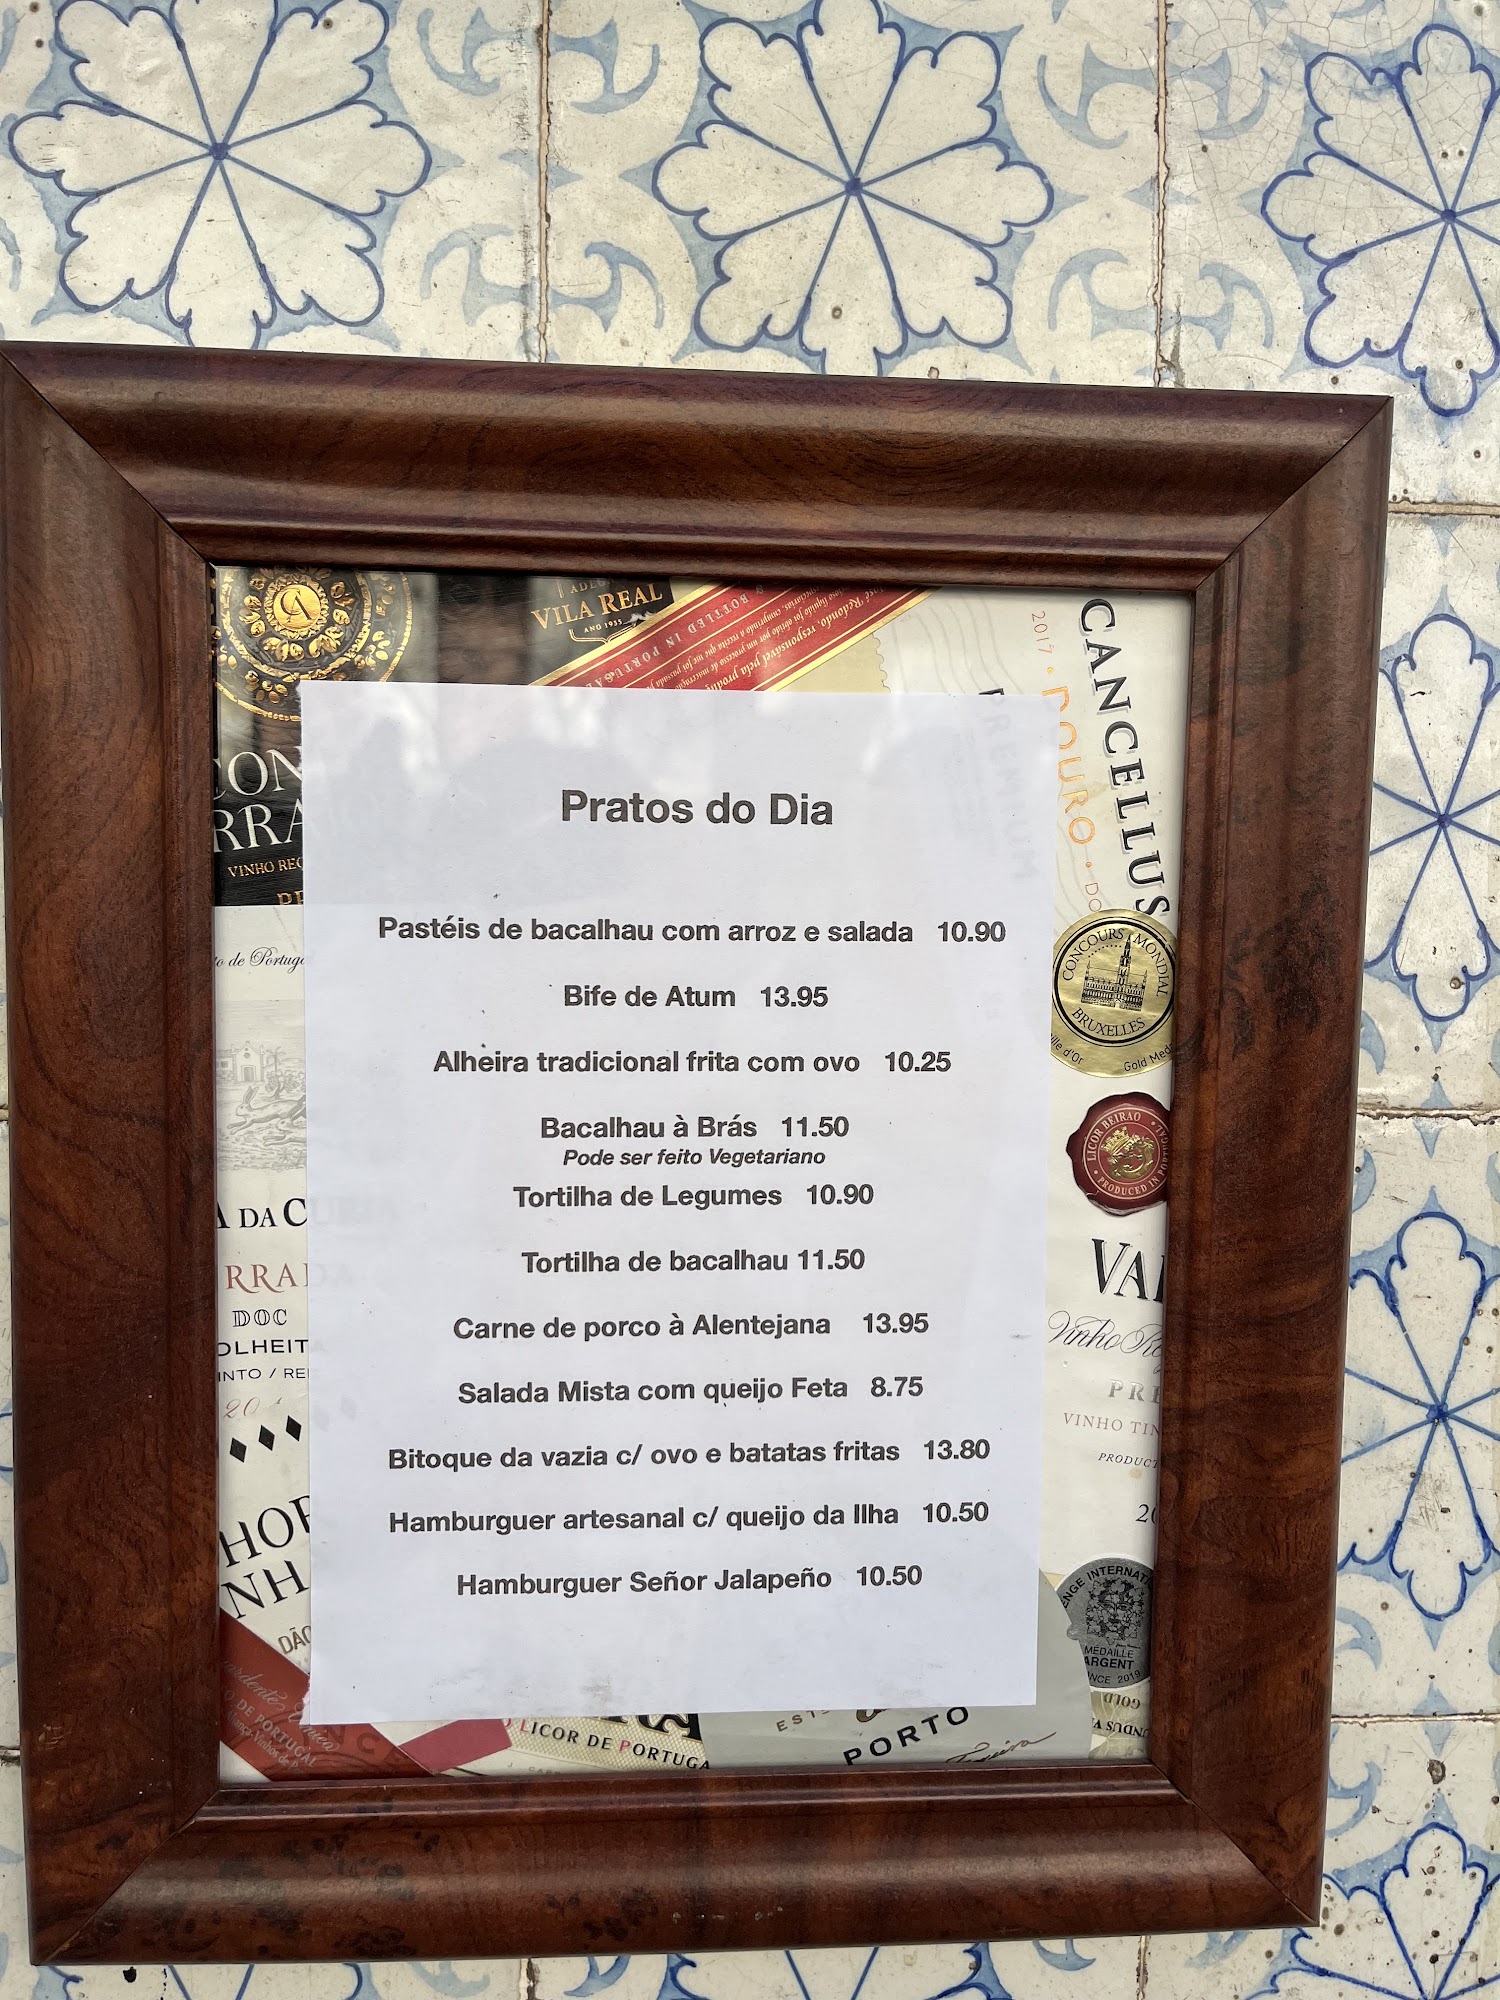 ADEG
VILA REAL
ANO 1955
BOTTLED IN PORTUGA
2017 · DOURO · DO
CANCELLUS
PREMIUM
VINHO REG
to de Portuga
Pratos do Dia
Pastéis de bacalhau com arroz e salada 10.90
Bife de Atum 13.95
Alheira tradicional frita com ovo 10.25
Bacalhau à Brás 11.50
Pode ser feito Vegetariano
Tortilha de Legumes 10.90
Tortilha de bacalhau 11.50
Carne de porco à Alentejana 13.95
Salada Mista com queijo Feta 8.75
Bitoque da vazia c/ ovo e batatas fritas 13.80
Hamburguer artesanal c/ queijo da Ilha 10.50
Hamburguer Señor Jalapeño 10.50
CONCOURS MONDIAL
BRUXELLES
Gold Meda
LICOR BEIRAO
PRODUCED IN PORTUGAL
DA CURIA
DOC
OLHEIT
INTO / RE
VAL
PRE
VINHO TIN
PRODUCT
20
HOR
NH
DÃO
ENGE INTERNAT
MÉDAILLE
ARGENT
NCE 2019
GOLD
UNDUS V
O DE PORTUGAL
LICOR DE PORTUGA
EST
PORTO